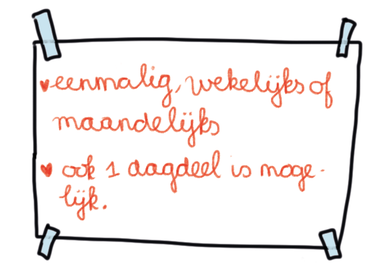 ♥ eenmalig, wekelijks of
maandelijks
♥ ook 1 dagdeel is moge-
lijk.